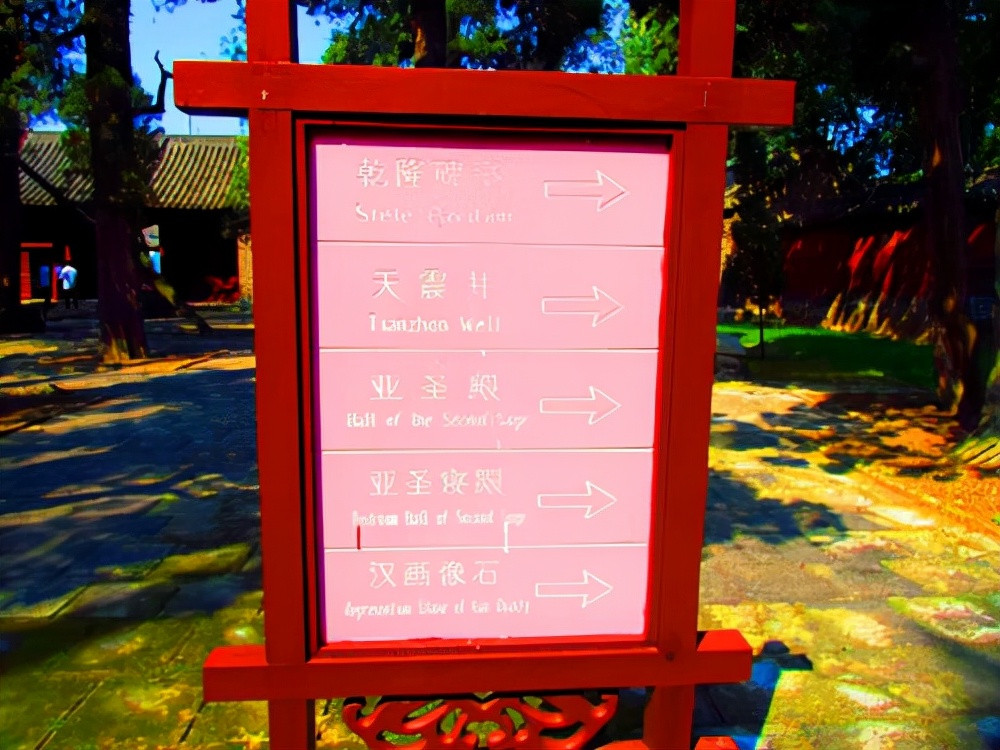 乾隆碑亭
Stele Pavilion
天震井
Tianzhen Well
亚圣殿
Hall of the Second
亚圣寝殿
Hall of Second
汉画像石